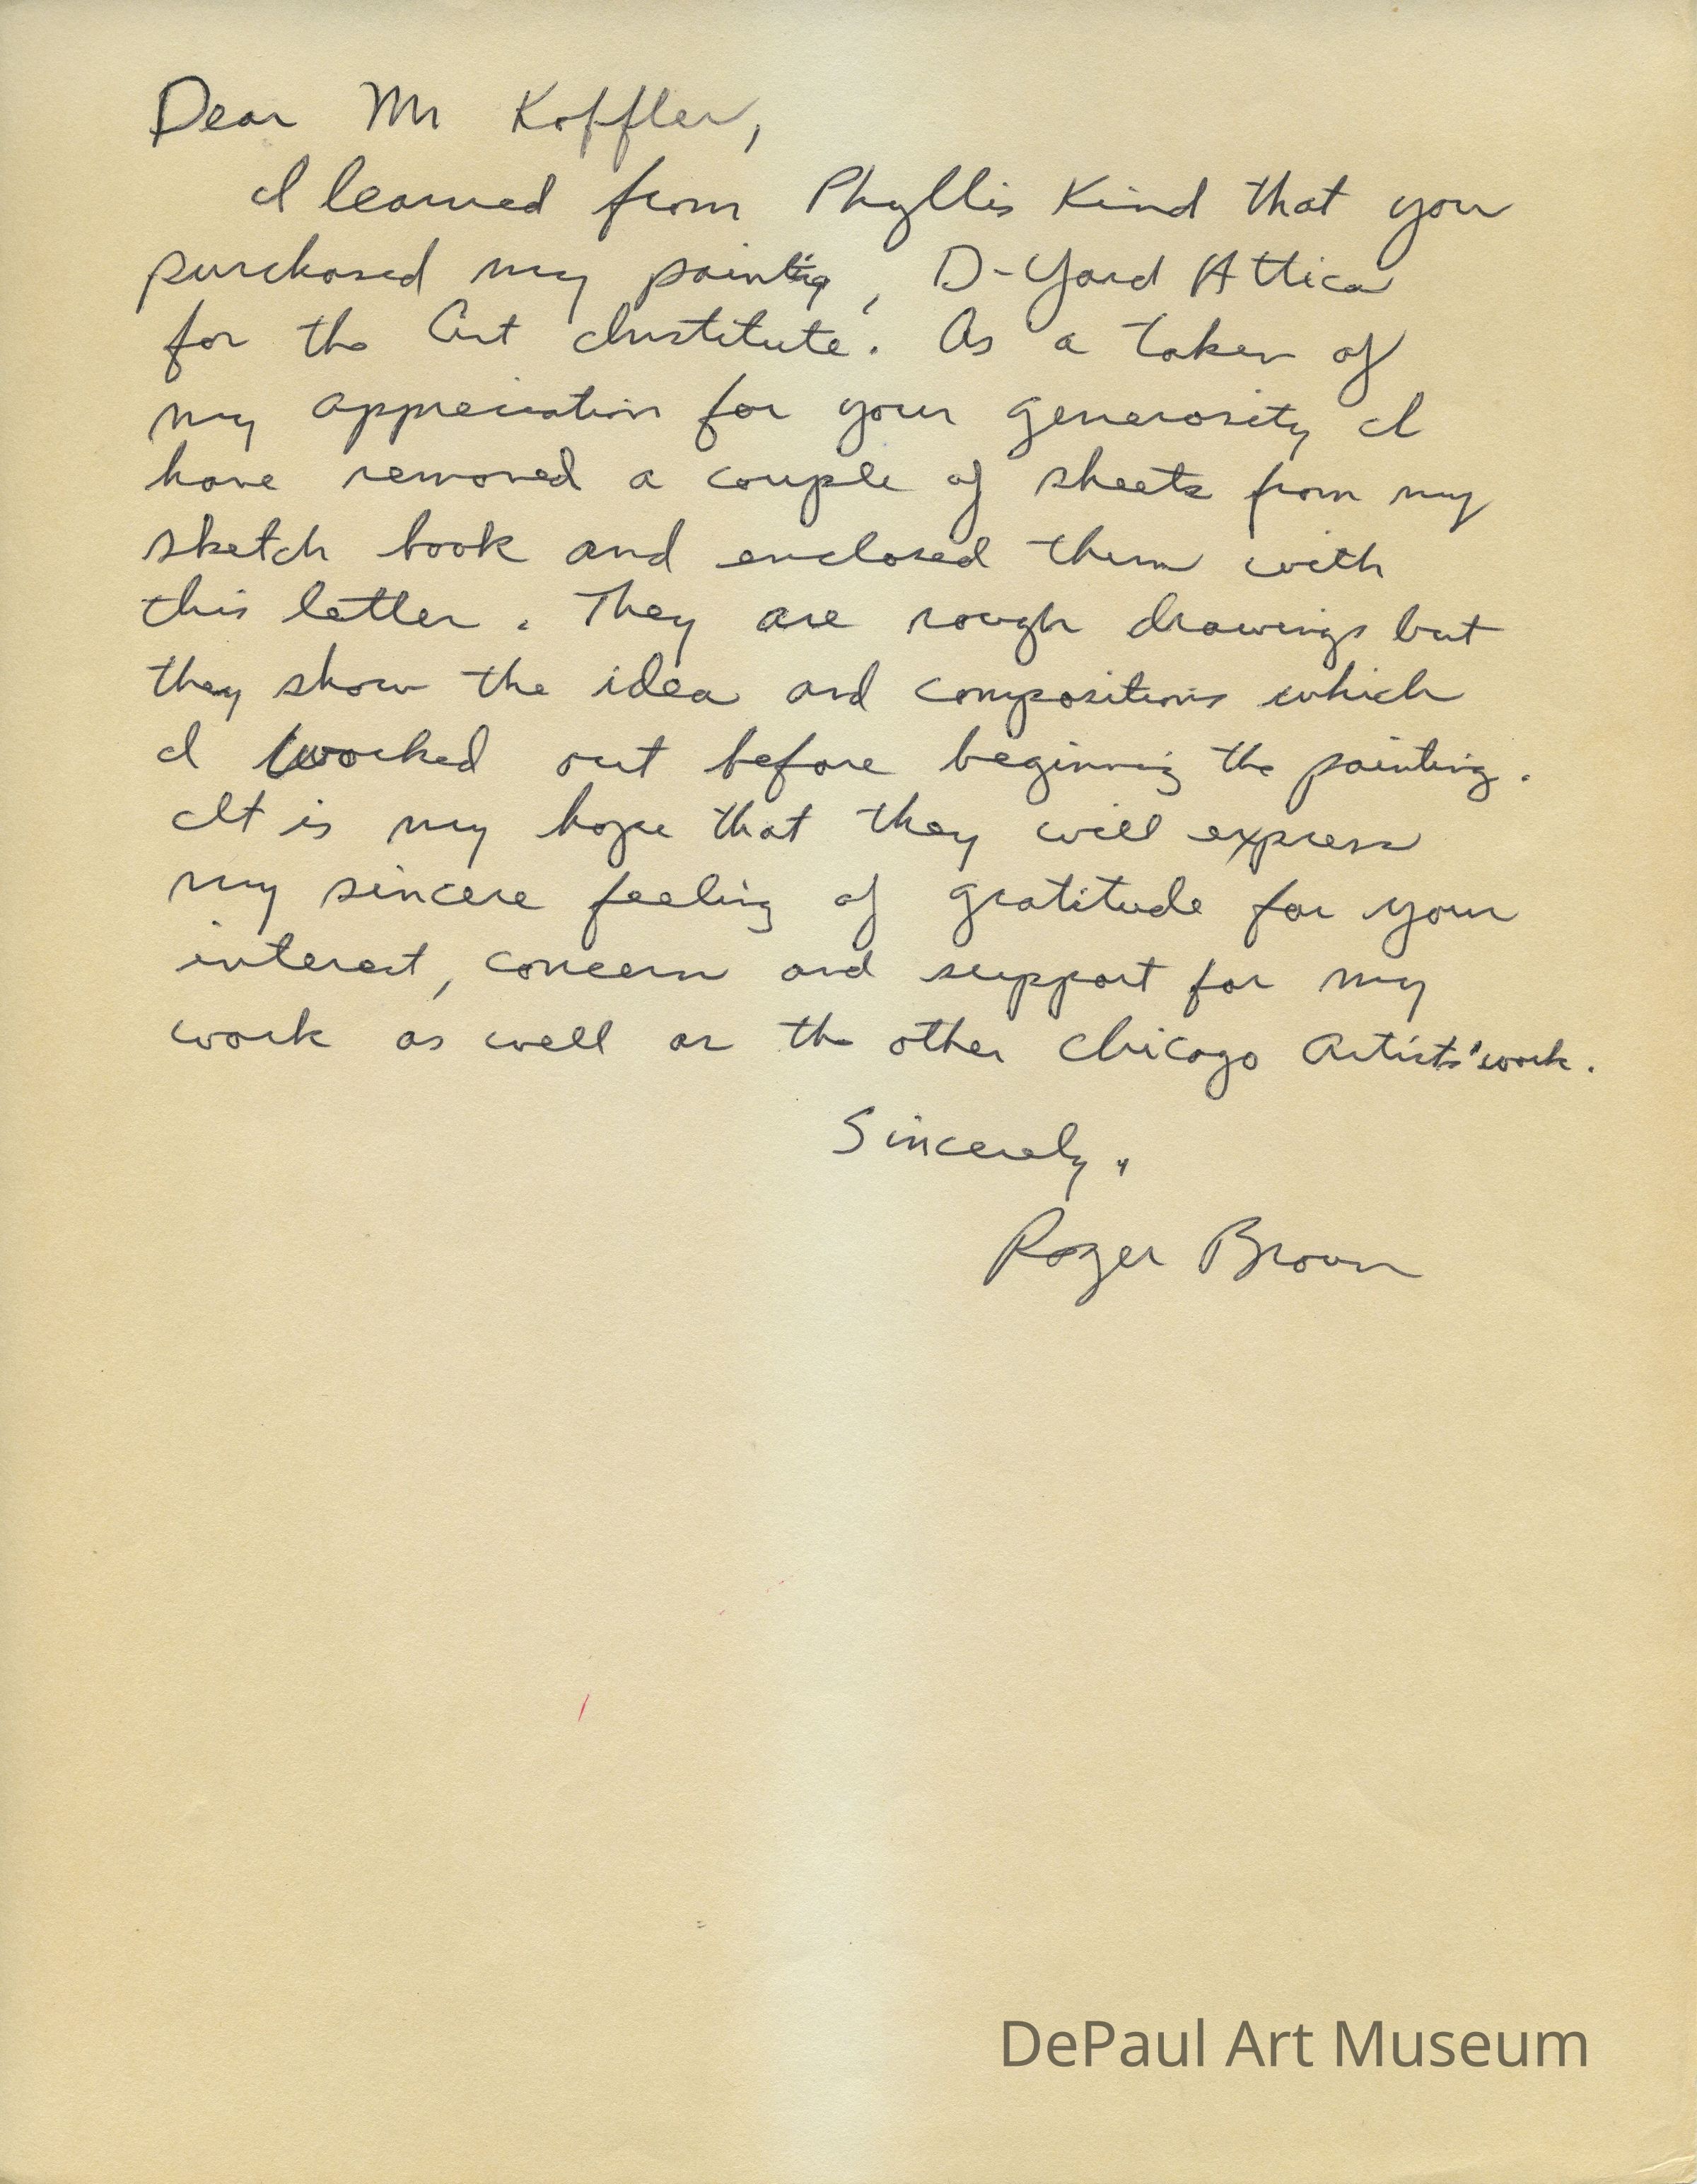 Dear Mr Koffler,
I learned from Phyllis Kind that you
purchased my painting, D-Yard Attica
for the Art Institute. As a token of
my appreciation for your generosity I
have removed a couple of sheets from my
sketch book and enclosed them with
this letter. They are rough drawings but
they show the idea and compositions which
I worked out before beginning the painting.
It is my hope that they will express
my sincere feeling of gratitude for your
interest, concern and support for my
work as well as the other Chicago Artists' work.
Sincerely,
Roger Brown
DePaul Art Museum